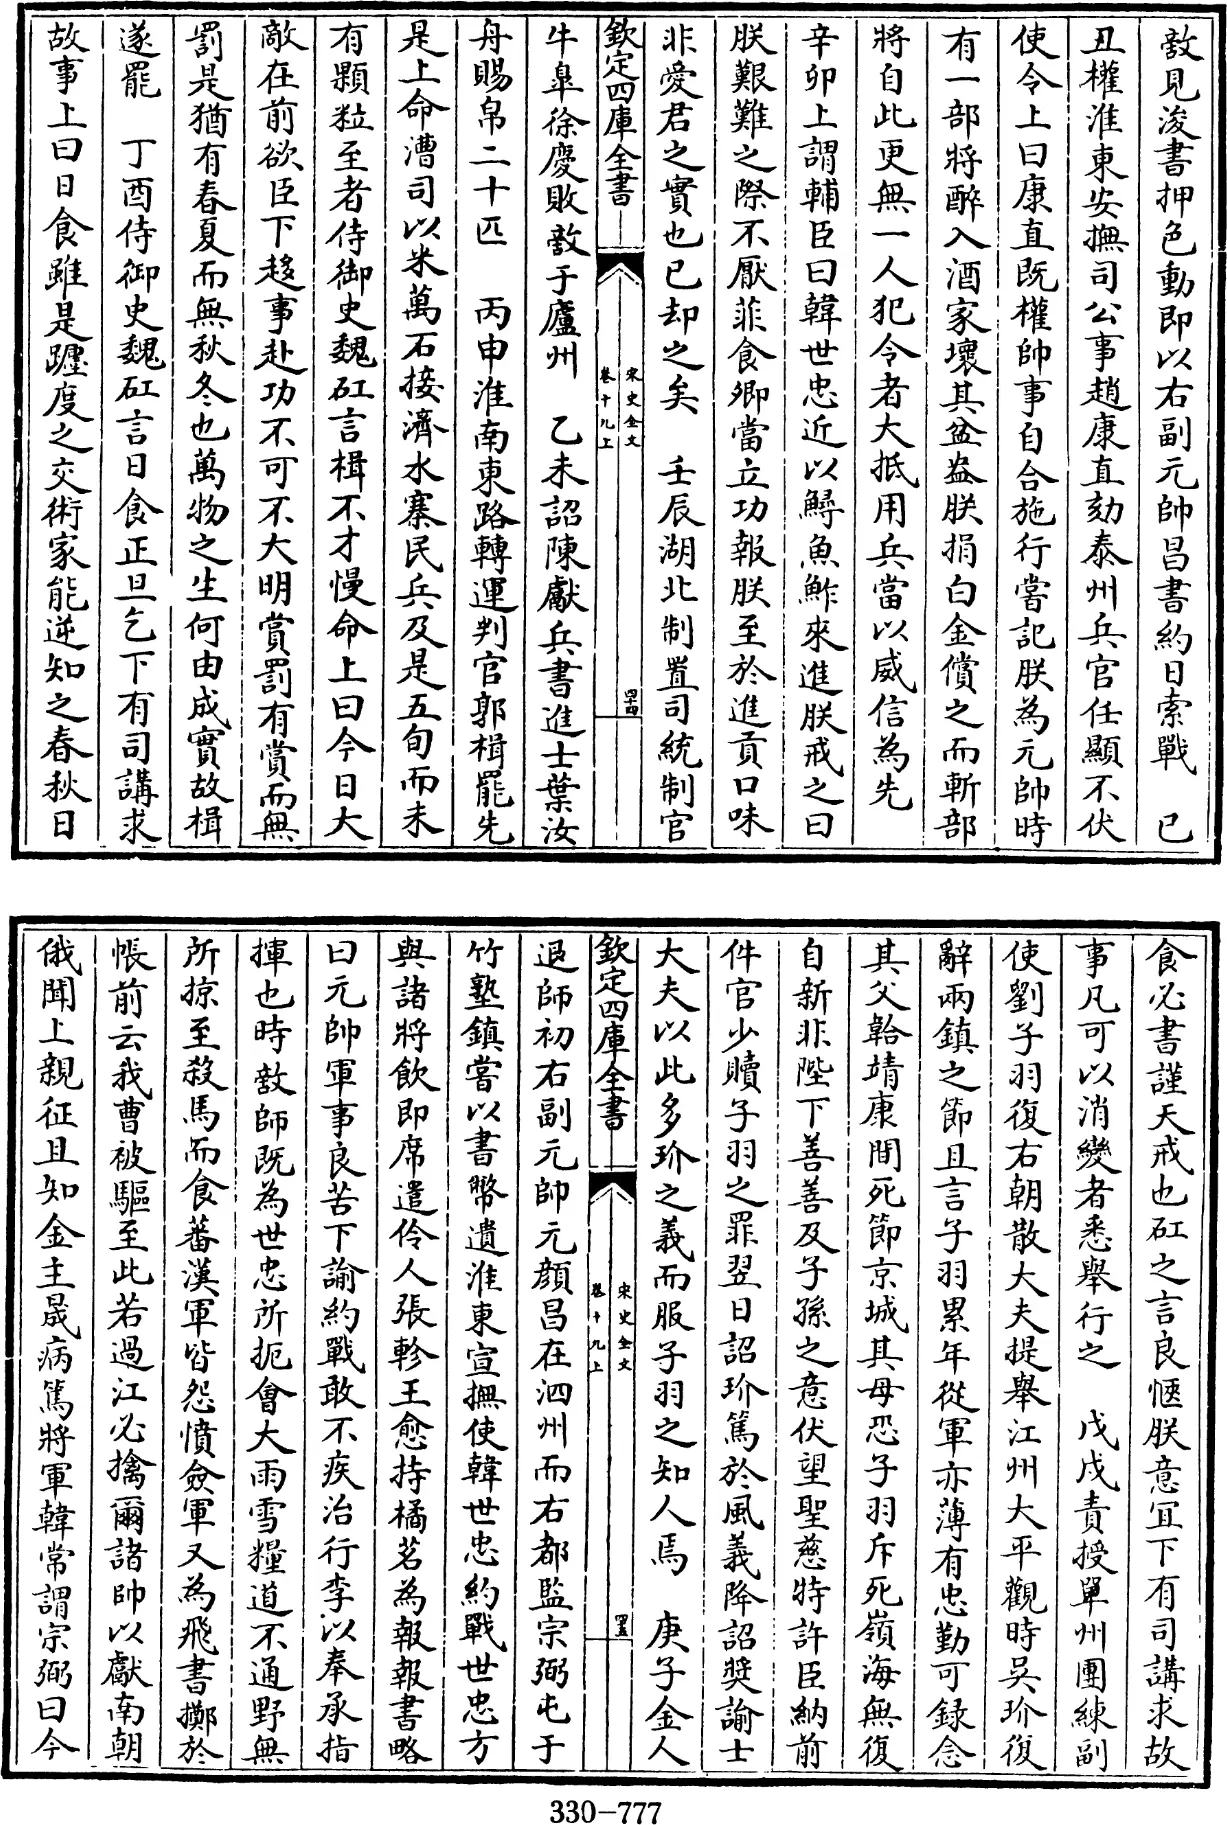 敵見浚書押色動即以右副元帥昌書約日索戰　已
丑權淮東安撫司公事趙康直劾泰州兵官任顯不伏
使令上曰康直既權帥事自合施行嘗記朕為元帥時
有一部將醉入酒家壞其盆盎朕捐白金償之而斬部
將自此更無一人犯令者大抵用兵當以威信為先
辛卯上謂輔臣曰韓世忠近以鱘魚鮓來進朕戒之曰
朕艱難之際不厭菲食卿當立功報朕至於進貢口味
非愛君之實也已却之矣　壬辰湖北制置司統制官
欽定四庫全書
宋史全文
卷十九上
四十四
牛臯徐慶敗敵于廬州　乙未詔陳獻兵書進士葉汝
舟賜帛二十匹　丙申淮南東路轉運判官郭楫罷先
是上命漕司以米萬石接濟水寨民兵及是五旬而未
有顆粒至者侍御史魏矼言楫不才慢命上曰今日大
敵在前欲臣下趍事赴功不可不大明賞罰有賞而無
罰是猶有春夏而無秋冬也萬物之生何由成實故楫
遂罷　丁酉侍御史魏矼言日食正旦乞下有司講求
故事上曰日食雖是躔度之交術家能逆知之春秋日
食必書謹天戒也矼之言良愜朕意宜下有司講求故
事凡可以消變者悉舉行之　戊戌責授單州團練副
使劉子羽復右朝散大夫提舉江州太平觀時吳玠復
辭兩鎮之節且言子羽累年從軍亦薄有忠勤可錄念
其父韐靖康間死節京城其母恐子羽斥死嶺海無復
自新非陛下善善及子孫之意伏望聖慈特許臣納前
件官少贖子羽之罪翌日詔玠篤於風義降詔獎諭士
大夫以此多玠之義而服子羽之知人焉　庚子金人
欽定四庫全書
宋史全文
卷十九上
四十五
退師初右副元帥元顏昌在泗州而右都監宗弼屯于
竹塾鎮嘗以書幣遺淮東宣撫使韓世忠約戰世忠方
與諸將飲即席遣伶人張軫王愈持橘茗為報報書略
曰元帥軍事良苦下諭約戰敢不疾治行李以奉承指
揮也時敵師既為世忠所扼會大雨雪糧道不通野無
所掠至殺馬而食蕃漢軍皆怨憤僉軍又為飛書擲於
帳前云我曹被驅至此若過江必擒爾諸帥以獻南朝
俄聞上親征且知金主晟病篤將軍韓常謂宗弼曰今
330-777